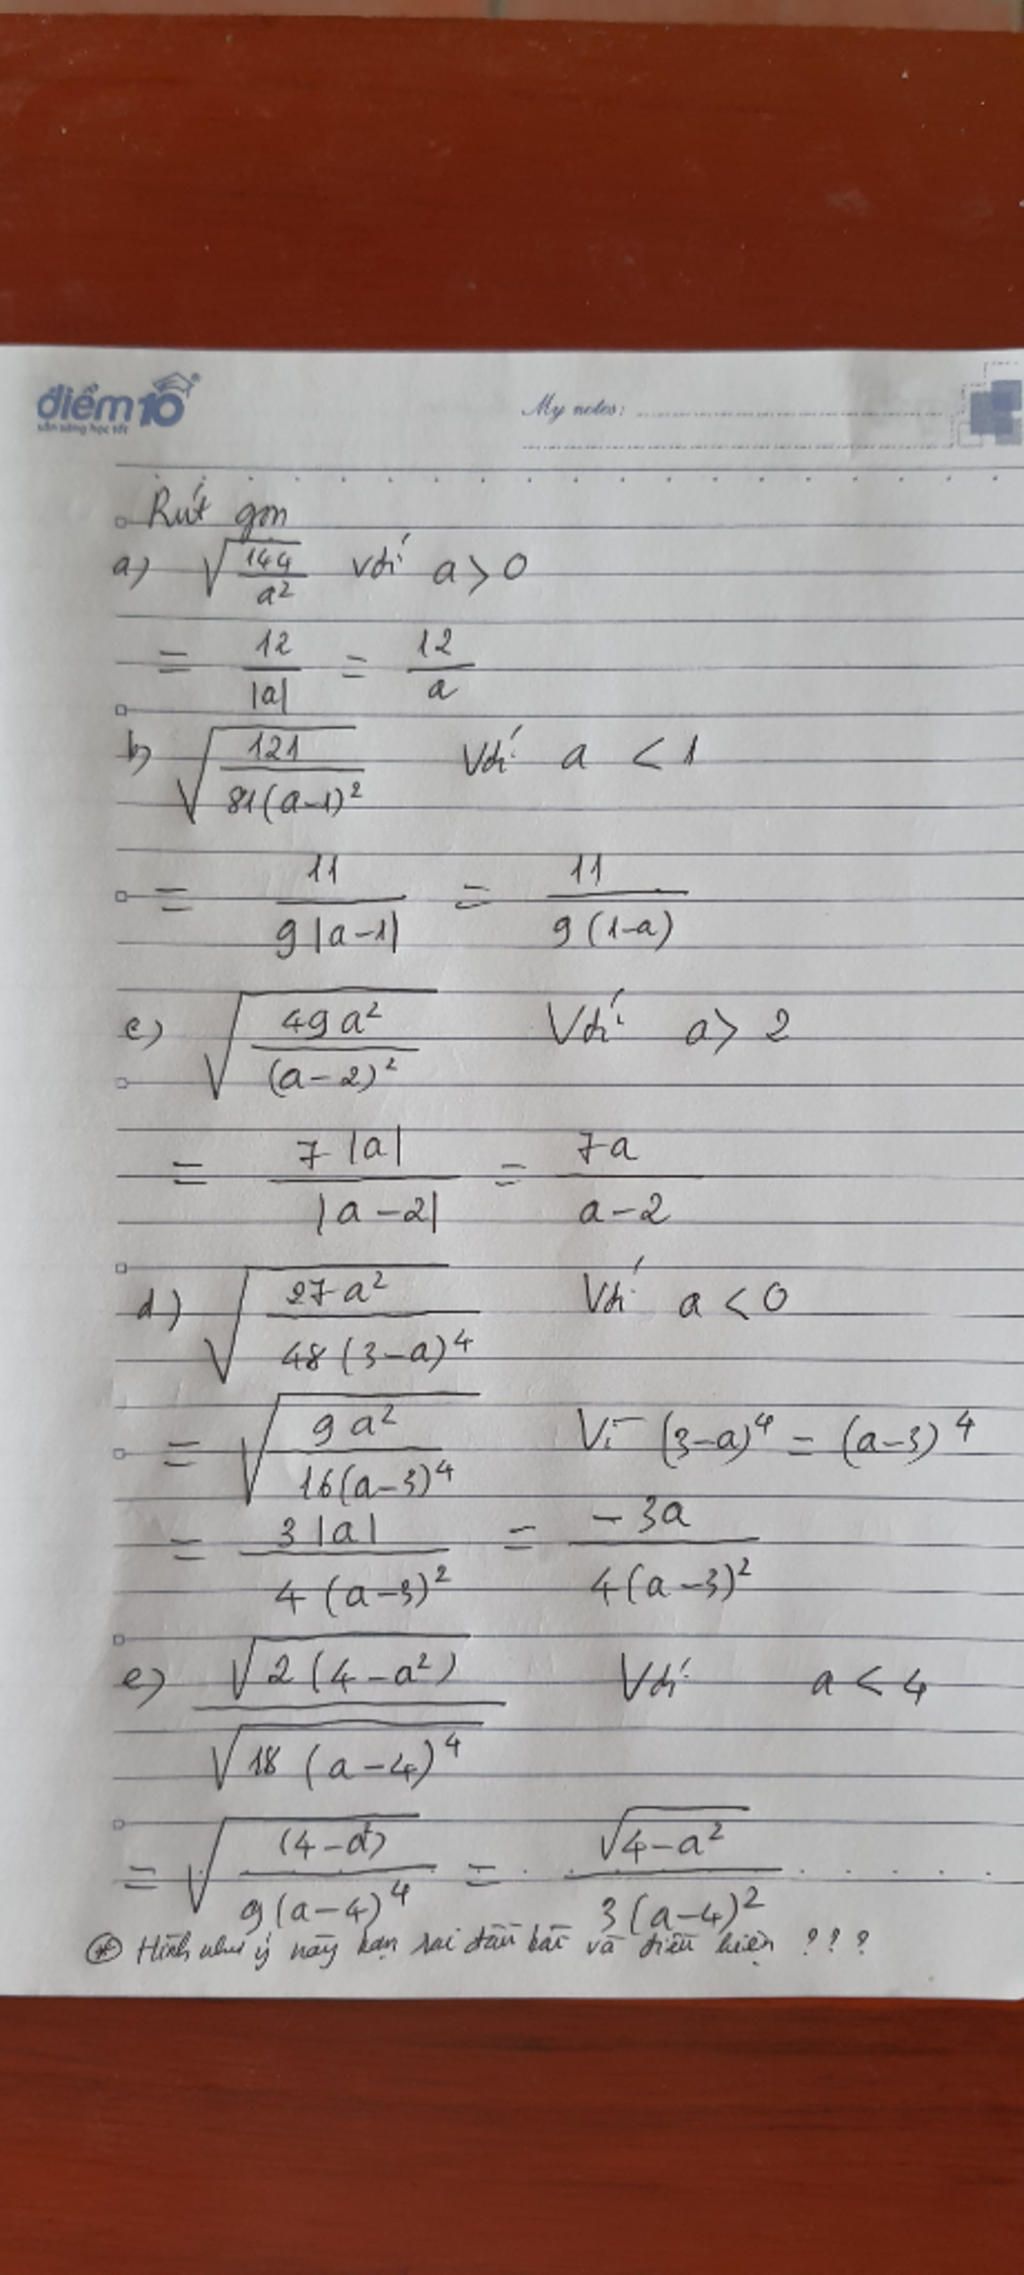 điểm10
sẵn sàng học tốt
My notes:
Rút gọn
a) √(144/a²) với a > 0
= 12/|a| = 12/a
b) √(121/81(a-1)²) Với a < 1
= 11/9|a-1| = 11/9(1-a)
c) √(49a²/(a-2)²) Với a > 2
= 7|a|/|a-2| = 7a/a-2
d) √(27a²/48(3-a)⁴) Với a < 0
= √(9a²/16(a-3)⁴) Vì (3-a)⁴ = (a-3)⁴
= 3|a|/4(a-3)² = -3a/4(a-3)²
e) √2(4-a²)/√18(a-4)⁴ Với a < 4
= √((4-a²)/9(a-4)⁴) = √4-a²/3(a-4)²
* Hình như ý này bạn sai đầu bài và điều kiện ???